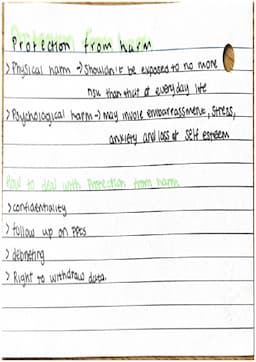 Protection from harm
> Physical harm -> Shouldn't be exposed to no more
risk than that of everyday life
> Psychological harm -> may involve embarrassment, stress,
anxiety and loss of self esteem
How to deal with Protection from harm
> confidentiality
> follow up on PPES
> debriefing
> Right to withdraw data.